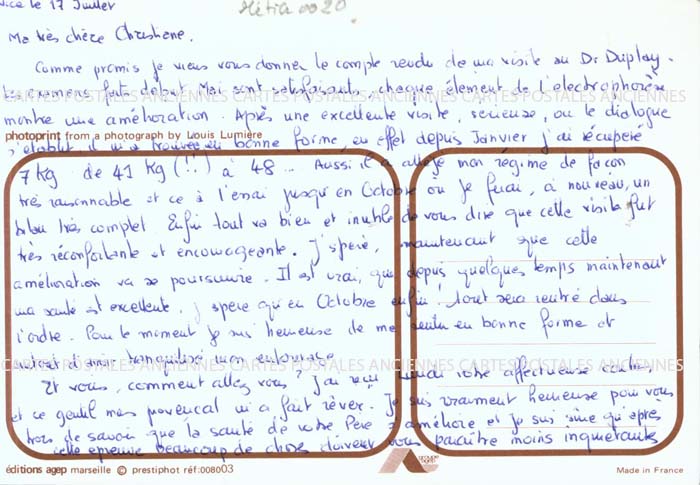 Nice le 17 Juillet
Métia 0020
Ma très chère Christiane.
Comme promis je viens vous donner le compte rendu de ma visite au Dr Duplay.
Les examens faits début Mai sont satisfaisants, chaque élément de l'électrophorèse
CARTES POSTALES ANCIENNES CARTES POSTALES ANCIENNES CARTES POSTALES ANCIENNES
montre une amélioration. Après une excellente visite, sérieuse, où le dialogue
photoprint from a photograph by Louis Lumière
s'établit, il m'a trouvée en bonne forme, en effet depuis Janvier j'ai récupéré
7 Kg de 41 Kg (!!) à 48... Aussi il a allégé mon régime de façon
très raisonnable et ce à l'essai jusqu'en Octobre où je ferai, à nouveau, un
bilan très complet. Enfin tout va bien et inutile de vous dire que cette visite fut
très réconfortante et encourageante. J'espère, maintenant que cette
amélioration va se poursuivre. Il est vrai, que depuis quelques temps maintenant
ma santé est excellente, j'espère qu'en Octobre enfin! tout sera rentré dans
l'ordre. Pour le moment je suis heureuse de me sentir en bonne forme et
surtout d'avoir tranquilisé mon entourage
CARTES POSTALES ANCIENNES CARTES POSTALES ANCIENNES CARTES POSTALES ANCIENNES
Et vous, comment allez vous? J'ai reçu votre affectueuse carte,
et ce gentil mas provençal m'a fait rêver. Je suis vraiment heureuse pour vous
trois de savoir que la santé de votre Père s'améliore et je suis sûre qu'après
cette épreuve beaucoup de choses doivent vous paraître moins inquiétantes
éditions agep marseille © prestiphot réf:008003
Made in France